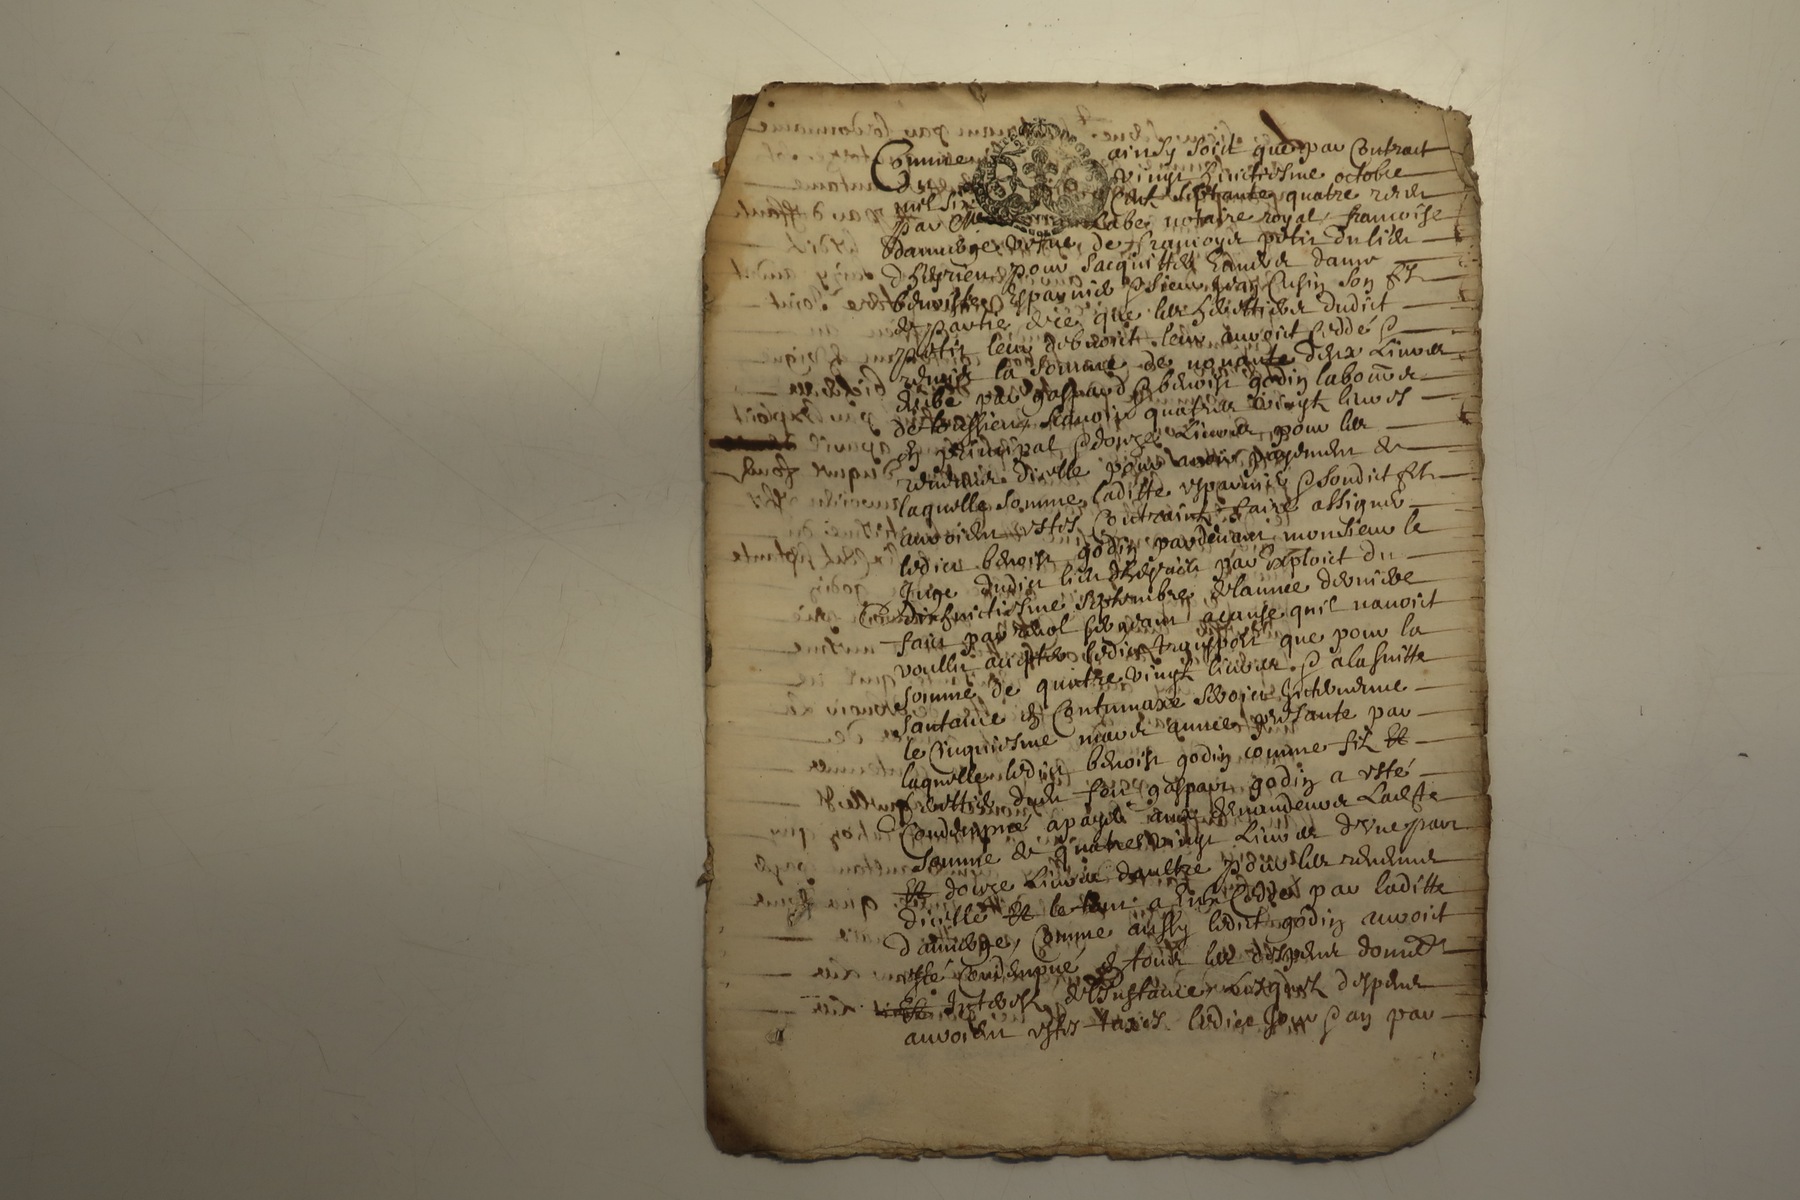 Comme ainsy soict que par Contract
vingt huictiesme octobre
mil six Cent septante quatre receu
par Me Labe notaire royal francoise
damiege vefve de francoys petit du lieu
d'heyrieu pour sacquitter envers dame
benoiste esparnier & sieur Jean Cusin son filz
de partie de ce que les heritiers dudict
petit leur debvoit leur auroit ceddé &
remis la somme de nonante deux Livres
deube par gaspard & benoist godin laboure
de toussieu scavoir quatre vingt livres
en principal & douze Livres pour les
despens dicelle pour avoir payement de
laquelle somme laditte esparnier & sondict filz
auroient estés Contraint faire assigner
ledict benoist godin pardevant monsieur le
Juge dudict lieu dheyrieu par exploict du
dixhuictiesme septembre delannée derniere
faict par revol sergeant acause quil navoict
voullu accepter ledict transport que pour la
somme de quatre vingt livres & alasuitte
santance en Contumaxe seroict Intervenue
le cinquiesme mars année presante par
laquelle ledict benoist godin comme filz et
heritier dudit feu gaspard godin a esté
Condempné apayer aux demandeurs Laditte
somme de quatre vingt Livres d'une part
et douze Livres daultre pour les despens
dicelle et le tout a eux Ceddé par laditte
damiege, Comme aussy ledict godin auroit
esté Condempné en tous les despens dommages
et Interest de linstance, Lesquelz despens
auroient estés taxés ledict Jour & an par